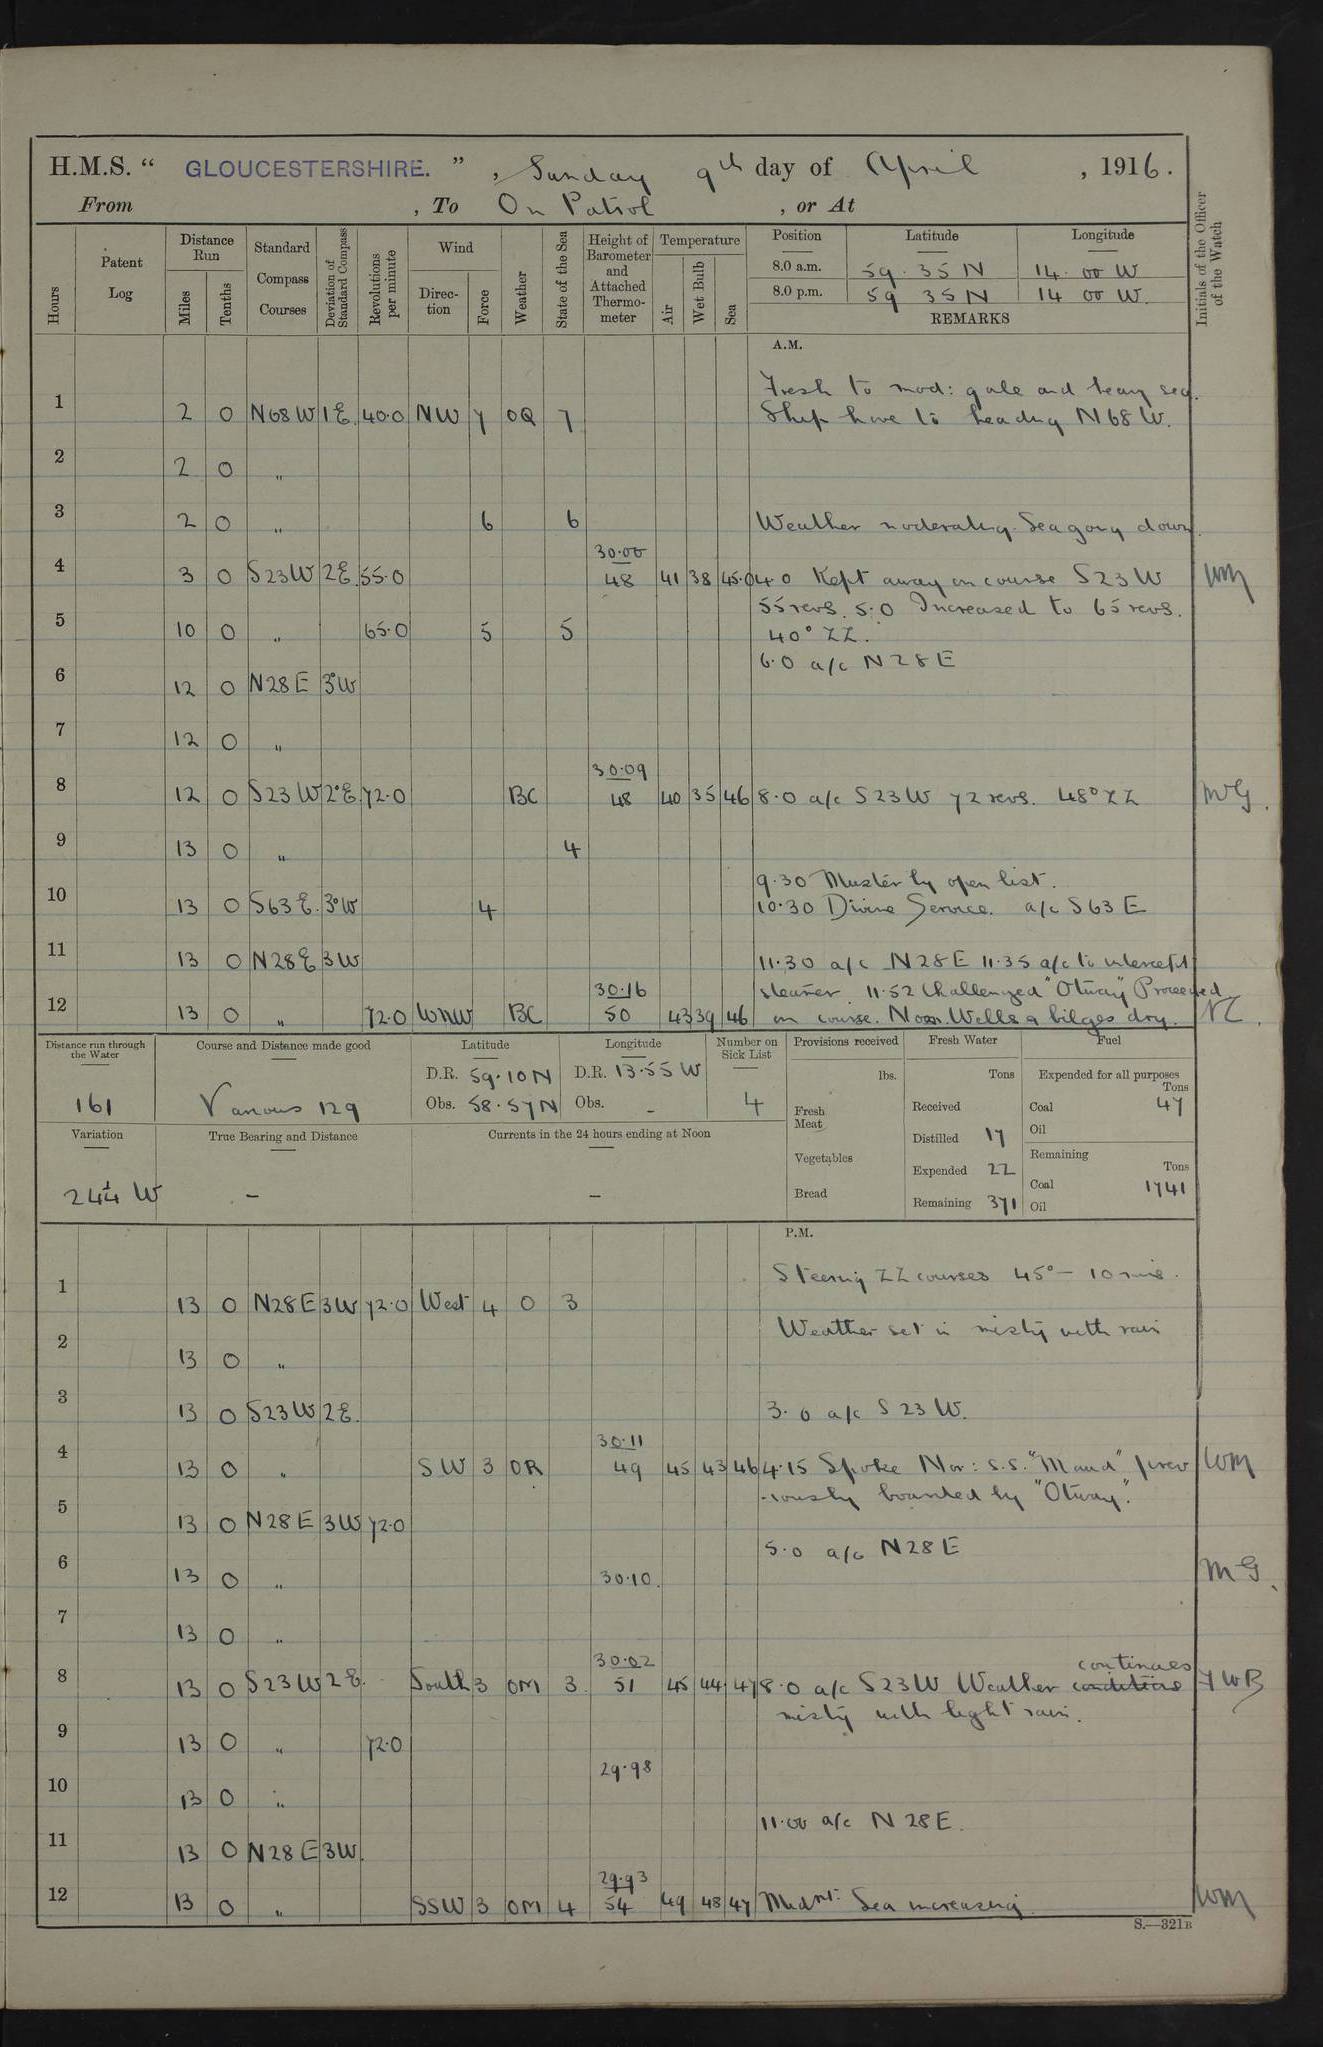 H.M.S. “ GLOUCESTERSHIRE. ” , Sunday 9th day of April , 1916.
From , To On Patrol , or At
Hours
Patent Log
Distance Run
Miles
Tenths
Standard Compass Courses
Deviation of Standard Compass
Revolutions per minute
Wind
Direction
Force
Weather
State of the Sea
Height of Barometer and Attached Thermometer
Temperature
Air
Wet Bulb
Sea
Position Latitude Longitude
8.0 a.m. 59. 35 N 14. 00 W
8.0 p.m. 59 35 N 14 00 W.
REMARKS
Initials of the Officer of the Watch
A.M.
Fresh to mod: gale and heavy sea.
1 2 0 N68W 1E. 40.0 NW 7 OQ 7 Ship hove to heading N68W.
2 2 0 "
3 2 0 " 6 6 Weather moderating. Sea going down
30.00
4 3 0 S23W 2E. 55.0 48 41 38 45.0 4.0 Kept away on course S23W WM
55 revs. 5.0 Increased to 65 revs.
5 10 0 " 65.0 5 5 40° ZZ.
6.0 a/c N28E
6 12 0 N28E 3°W
7 12 0 "
30.09
8 12 0 S23W 2°E. 72.0 BC 48 40 35 46 8.0 a/c S23W 72 revs. 48° ZZ MG.
9 13 0 " 4
9.30 Muster by open list.
10 13 0 S63E. 3°W 4 10.30 Divine Service. a/c S63E
11 13 0 N28E 3W 11.30 a/c N28E 11.35 a/c to intercept
30.16 steamer. 11.52 Challenged "Otway" Proceeded
12 13 0 " 72.0 WNW BC 50 43 39 46 on course. Noon. Wells & bilges dry.
Distance run through the Water
161
Course and Distance made good
Various 129
Latitude
D.R. 59.10N
Obs. 58.57N
Longitude
D.R. 13.55W
Obs. –
Number on Sick List
4
Provisions received
lbs.
Fresh Meat
Vegetables
Bread
Fresh Water
Tons
Received
Distilled 17
Expended 22
Remaining 371
Fuel
Expended for all purposes
Tons
Coal 47
Oil
Remaining
Tons
Coal 1741
Oil
Variation
24¼ W
True Bearing and Distance
–
Currents in the 24 hours ending at Noon
–
P.M.
Steering ZZ courses 45° – 10 mins.
1 13 0 N28E 3W 72.0 West 4 O 3
Weather set in misty with rain
2 13 0 "
3 13 0 S23W 2E. 3.0 a/c S23W.
30.11
4 13 0 " SW 3 OR 49 45 43 46 4.15 Spoke Nor: s.s. "Maud" prev WM
-iously boarded by "Otway".
5 13 0 N28E 3W 72.0
5.0 a/c N28E
6 13 0 " 30.10. MG.
7 13 0 "
30.02 continues
8 13 0 S23W 2E. South 3 OM 3 51 45 44 47 8.0 a/c S23W Weather conditions
misty with light rain.
9 13 0 " 72.0
29.98
10 13 0 "
11.00 a/c N28E.
11 13 0 N28E 3W.
29.93
12 13 0 " SSW 3 OM 4 54 49 48 47 Midnt: Sea increasing. WM
S.—321B